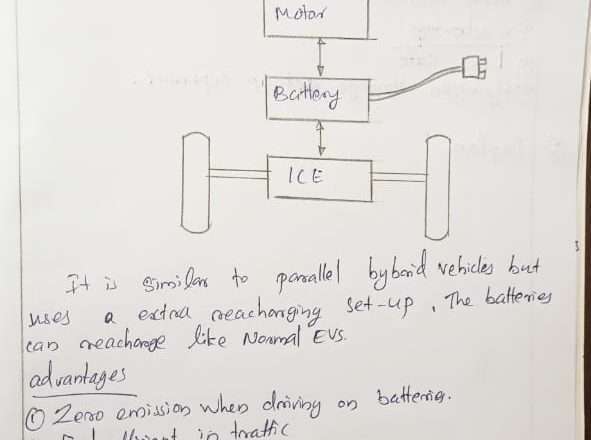 Motor
Battery
ICE
It is similar to parallel hybrid vehicles but
uses a extra reacharging set-up. The batteries
can reacharge like Normal EVs.
advantages
① Zero emission when driving on batteries.
in traffic